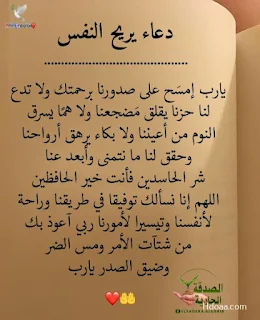 دعاء يريح النفس
يارب إمسَح على صدورنا برحمتك ولا تدع
لنا حزنا يقلق مَضجعنا ولا همّا يسرق
النوم من أعيننا ولا بكاء يرهق أرواحنا
وحقق لنا ما نتمنى وأبعد عنا
شر الحاسدين فأنت خير الحافظين
اللهم إنا نسألك توفيقا في طريقنا وراحة
لأنفسنا وتيسيرا لأمورنا ربي أعوذ بك
من شتآت الأمر ومس الضر
وضيق الصدر يارب
الصدقة
الجارية
Hdoaa.com